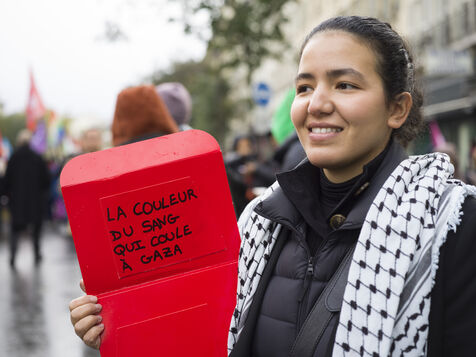 LA COULEUR
DU SANG
QUI COULE
À GAZA